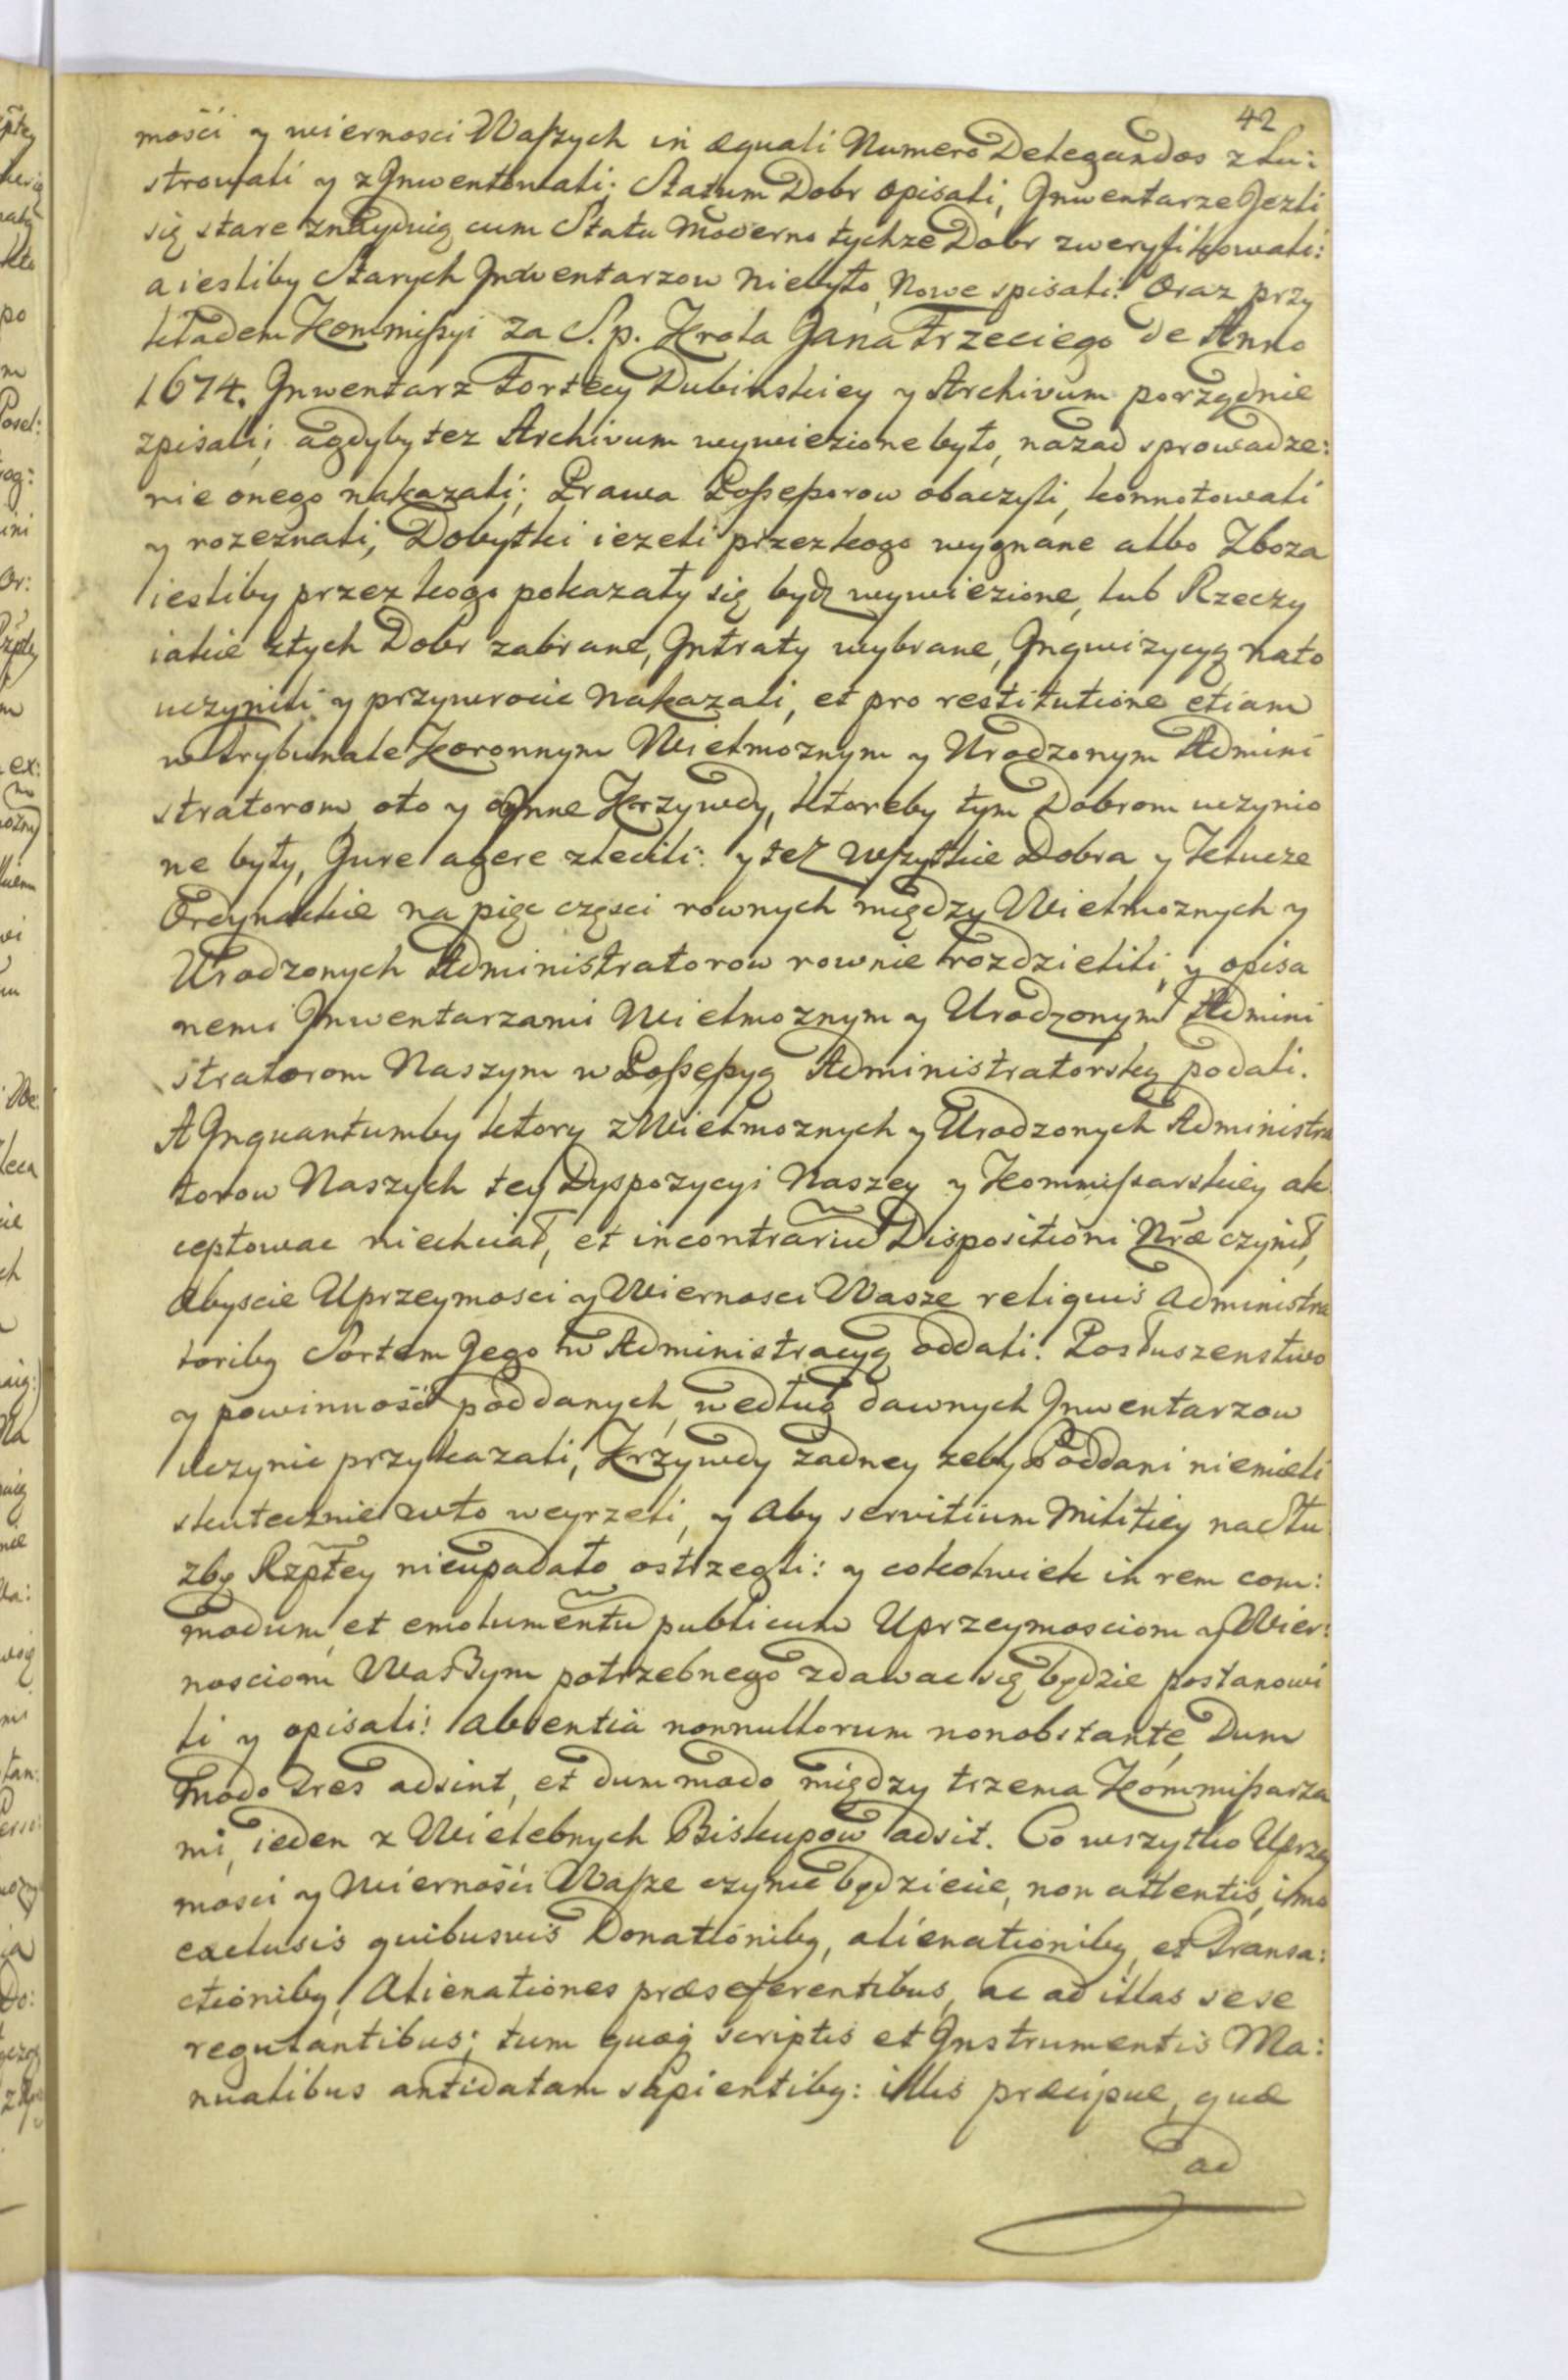 42
mości y wiernosci Waszych in æquali Numero Delegandos zlu:
strowali y zJnwentowali; Statum Dobr opisali, Jnwentarze Jezli
się stare znayduią cum Statu Moderno tychze Dobr zweryfikowali:
a iesliby Starych Jnwentarzow niebyło, Nowe spisali: Oraz przy
kładem Kommissyi za S. p. Krola Jana Trzeciego de Anno
1674. Jnwentarz Fortecy Dubinskiey y Archivum porządnie
zpisali; agdyby tez Archivum wywiezione było, nazad sprowadze:
nie onego nakazali; Prawa Possessorow obaczyli, konnotowali
y rozeznali, Dobytki iezeli przez kogo wygnane albo Zboza
iesliby przez kogo pokazały się bydz wywiezione, lub Rzeczy
iakie ztych Dobr zabrane, Jntraty wybrane, Jnqwizycyą nato
uczynili y przywrocic nakazali, et pro restitutione etiam
w Trybunale Koronnym Wielmoznym y Urodzonym Admini
stratorom, oto y Jnne Krzywdy, ktoreby tym Dobrom uczynio
ne były, Jure agere zlecili: y tez wszytkie Dobra y Klucze
Ordynackie na pięc częsci rownych między Wielmoznych y
Urodzonych Administratorow rownie rozdzielili, y opisa
nemi Jnwentarzami Wielmoznym y Urodzonym Admini
stratorom Naszym w Possessyą Administratorską podali.
A Jnquantumby ktory z Wielmoznych y Urodzonych Administra
torow Naszych tey Dyspozycyi Naszey y Kommissarskiey ak
ceptowac niechciał, et incontrariũ Dispositioni Nræ czynił,
abyscie Uprzeymosci y Wiernosci Wasze reliquis administra
toribq Sortem Jego w Administracyą oddali. Posłuszenstwo
y powinność poddanych według dawnych Jnwentarzow
uczynic przykazali, Krzywdy zadney zeby Poddani niemieli
skutecznie wto weyrzeli, y aby servitium Militiey nasłu
zbę Rzpłey nieupadało ostrzegli: y cokolwiek in rem com:
modum et emolumentũ publicum Uprzeymosciom y Wier:
nosciom Waszym potrzebnego zdawac się będzie postanowi
li y opisali: absentia nonnullorum nonobstante, Dum
modo Tres adsint, et dummodo między trzema Kommissarza
mi, ieden z Wielebnych Biskupow adsit. Co wszytko Uprzey
mosci y Wierności Wasze czynic będziecie, non attentis, imo
exclusis quibusvis Donationibq, alienationibq, et Transa:
ctionibq, Alienationes præseferentibus, ac ad illas sese
regulantibus; tum quoq scriptis et Jnstrumentis Ma:
nualibus antidatam sapientibq: illis præcipue, quæ
ad